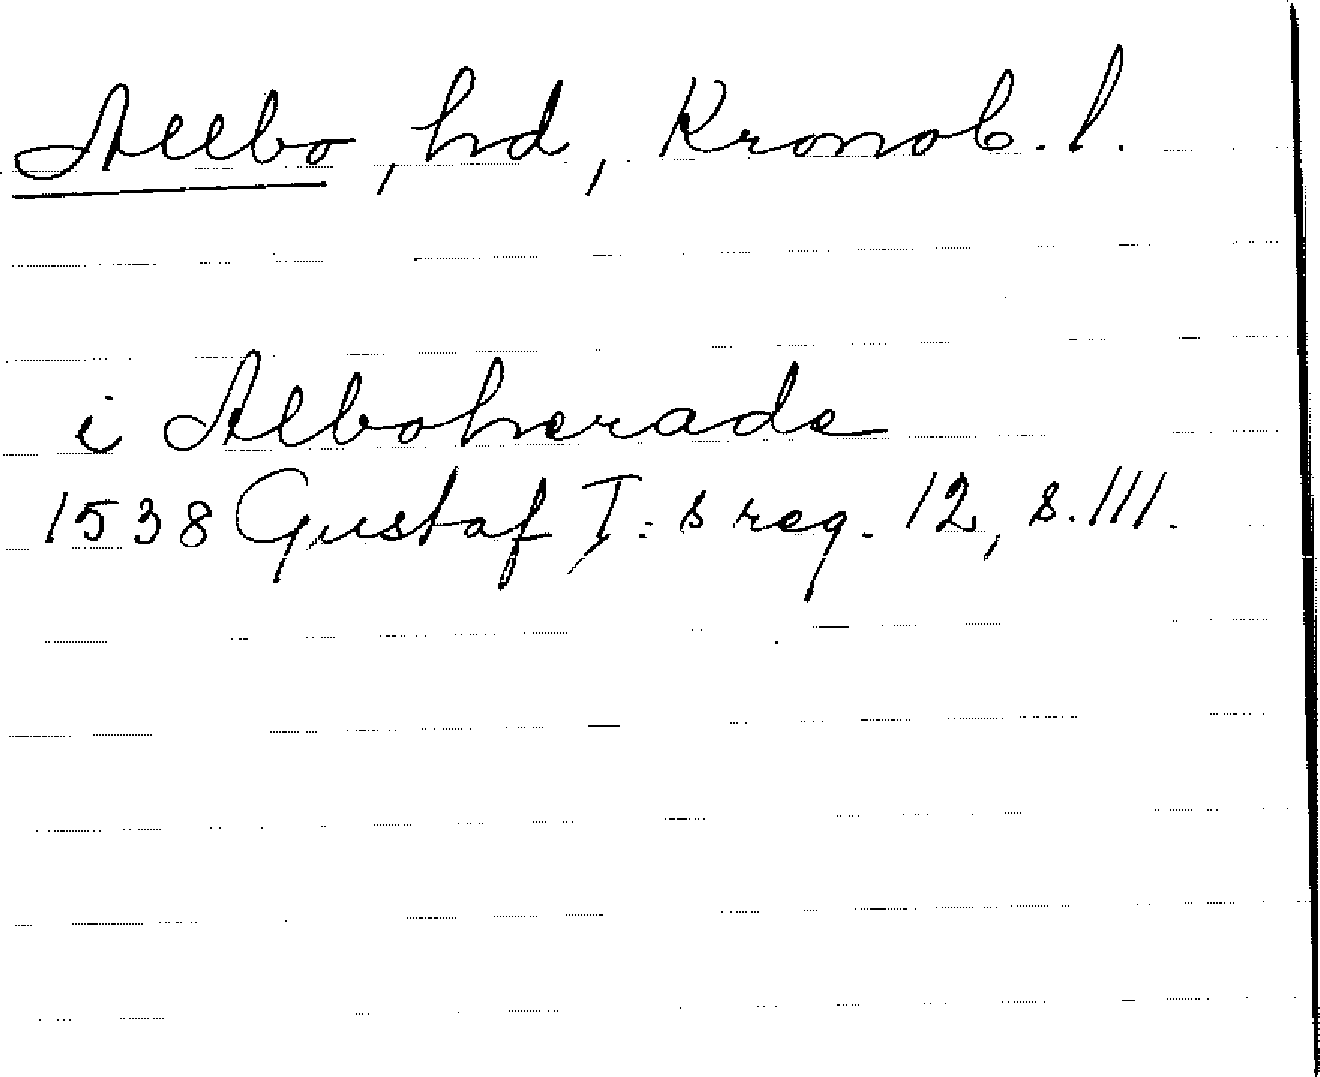 Allbo, hd, Kronob. l.
i Alboherade
1538 Gustaf I:s reg. 12, s. 111.